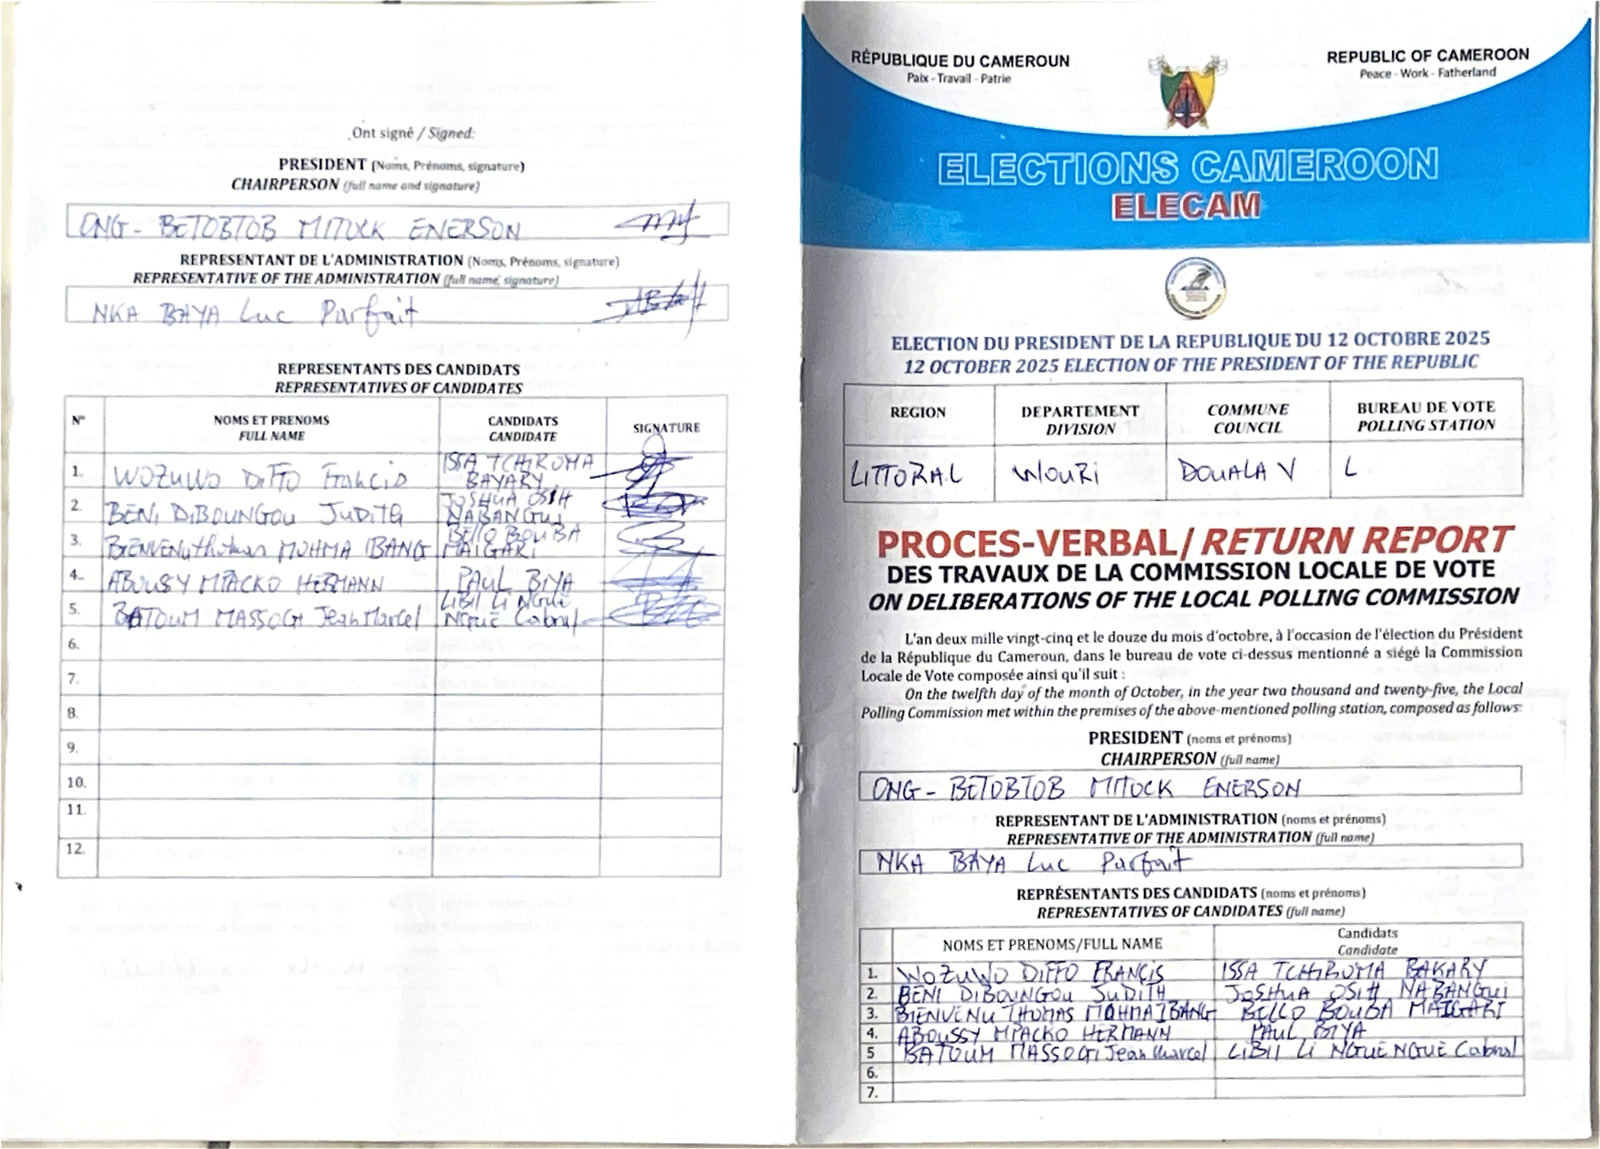 Ont signé / Signed:
PRESIDENT (Noms, Prénoms, signature)
CHAIRPERSON (full name and signature)
ONG - BETOBTOB MITOCK ENERSON
REPRESENTANT DE L'ADMINISTRATION (Noms, Prénoms, signature)
REPRESENTATIVE OF THE ADMINISTRATION (full name, signature)
NKA BAYA Luc Parfait
REPRESENTANTS DES CANDIDATS
REPRESENTATIVES OF CANDIDATES
N° NOMS ET PRENOMS CANDIDATS SIGNATURE
FULL NAME CANDIDATE
1. WOZUWO DIFFO Francis ISSA TCHIROMA BAYARY
2. BENI DIBOUNGOU JUDITH JOSHUA OSIH NABANGUI
3. BIENVENU thomas MOHMA IBANG BELLO BOUBA MAIGARI
4. ABOUSSY MPACKO HERMANN PAUL BIYA
5. BATOUM MASSOGI Jean Marcel LIBII LI NGUE NGUE Cabral
6.
7.
8.
9.
10.
11.
12.
RÉPUBLIQUE DU CAMEROUN
Paix - Travail - Patrie
REPUBLIC OF CAMEROON
Peace - Work - Fatherland
ELECTIONS CAMEROON
ELECAM
ELECTION DU PRESIDENT DE LA REPUBLIQUE DU 12 OCTOBRE 2025
12 OCTOBER 2025 ELECTION OF THE PRESIDENT OF THE REPUBLIC
REGION DEPARTEMENT COMMUNE BUREAU DE VOTE
DIVISION COUNCIL POLLING STATION
LITTORAL WOURI DOUALA V L
PROCES-VERBAL/ RETURN REPORT
DES TRAVAUX DE LA COMMISSION LOCALE DE VOTE
ON DELIBERATIONS OF THE LOCAL POLLING COMMISSION
L'an deux mille vingt-cinq et le douze du mois d'octobre, à l'occasion de l'élection du Président
de la République du Cameroun, dans le bureau de vote ci-dessus mentionné a siégé la Commission
Locale de Vote composée ainsi qu'il suit :
On the twelfth day of the month of October, in the year two thousand and twenty-five, the Local
Polling Commission met within the premises of the above-mentioned polling station, composed as follows:
PRESIDENT (noms et prénoms)
CHAIRPERSON (full name)
ONG - BETOBTOB MITOCK ENERSON
REPRESENTANT DE L'ADMINISTRATION (noms et prénoms)
REPRESENTATIVE OF THE ADMINISTRATION (full name)
NKA BAYA Luc Parfait
REPRÉSENTANTS DES CANDIDATS (noms et prénoms)
REPRESENTATIVES OF CANDIDATES (full name)
NOMS ET PRENOMS/FULL NAME Candidats
Candidate
1. WOZUWO DIFFO FRANCIS ISSA TCHIROMA BAKARY
2. BENI DIBOUNGOU JUDITH JOSHUA OSIH NABANGUI
3. BIENVENU THOMAS MOHMA IBANG BELLO BOUBA MAIGARI
4. ABOUSSY MPACKO HERMANN PAUL BIYA
5 BATOUM MASSOGI Jean Marcel LIBII LI NGUE NGUE Cabral
6.
7.